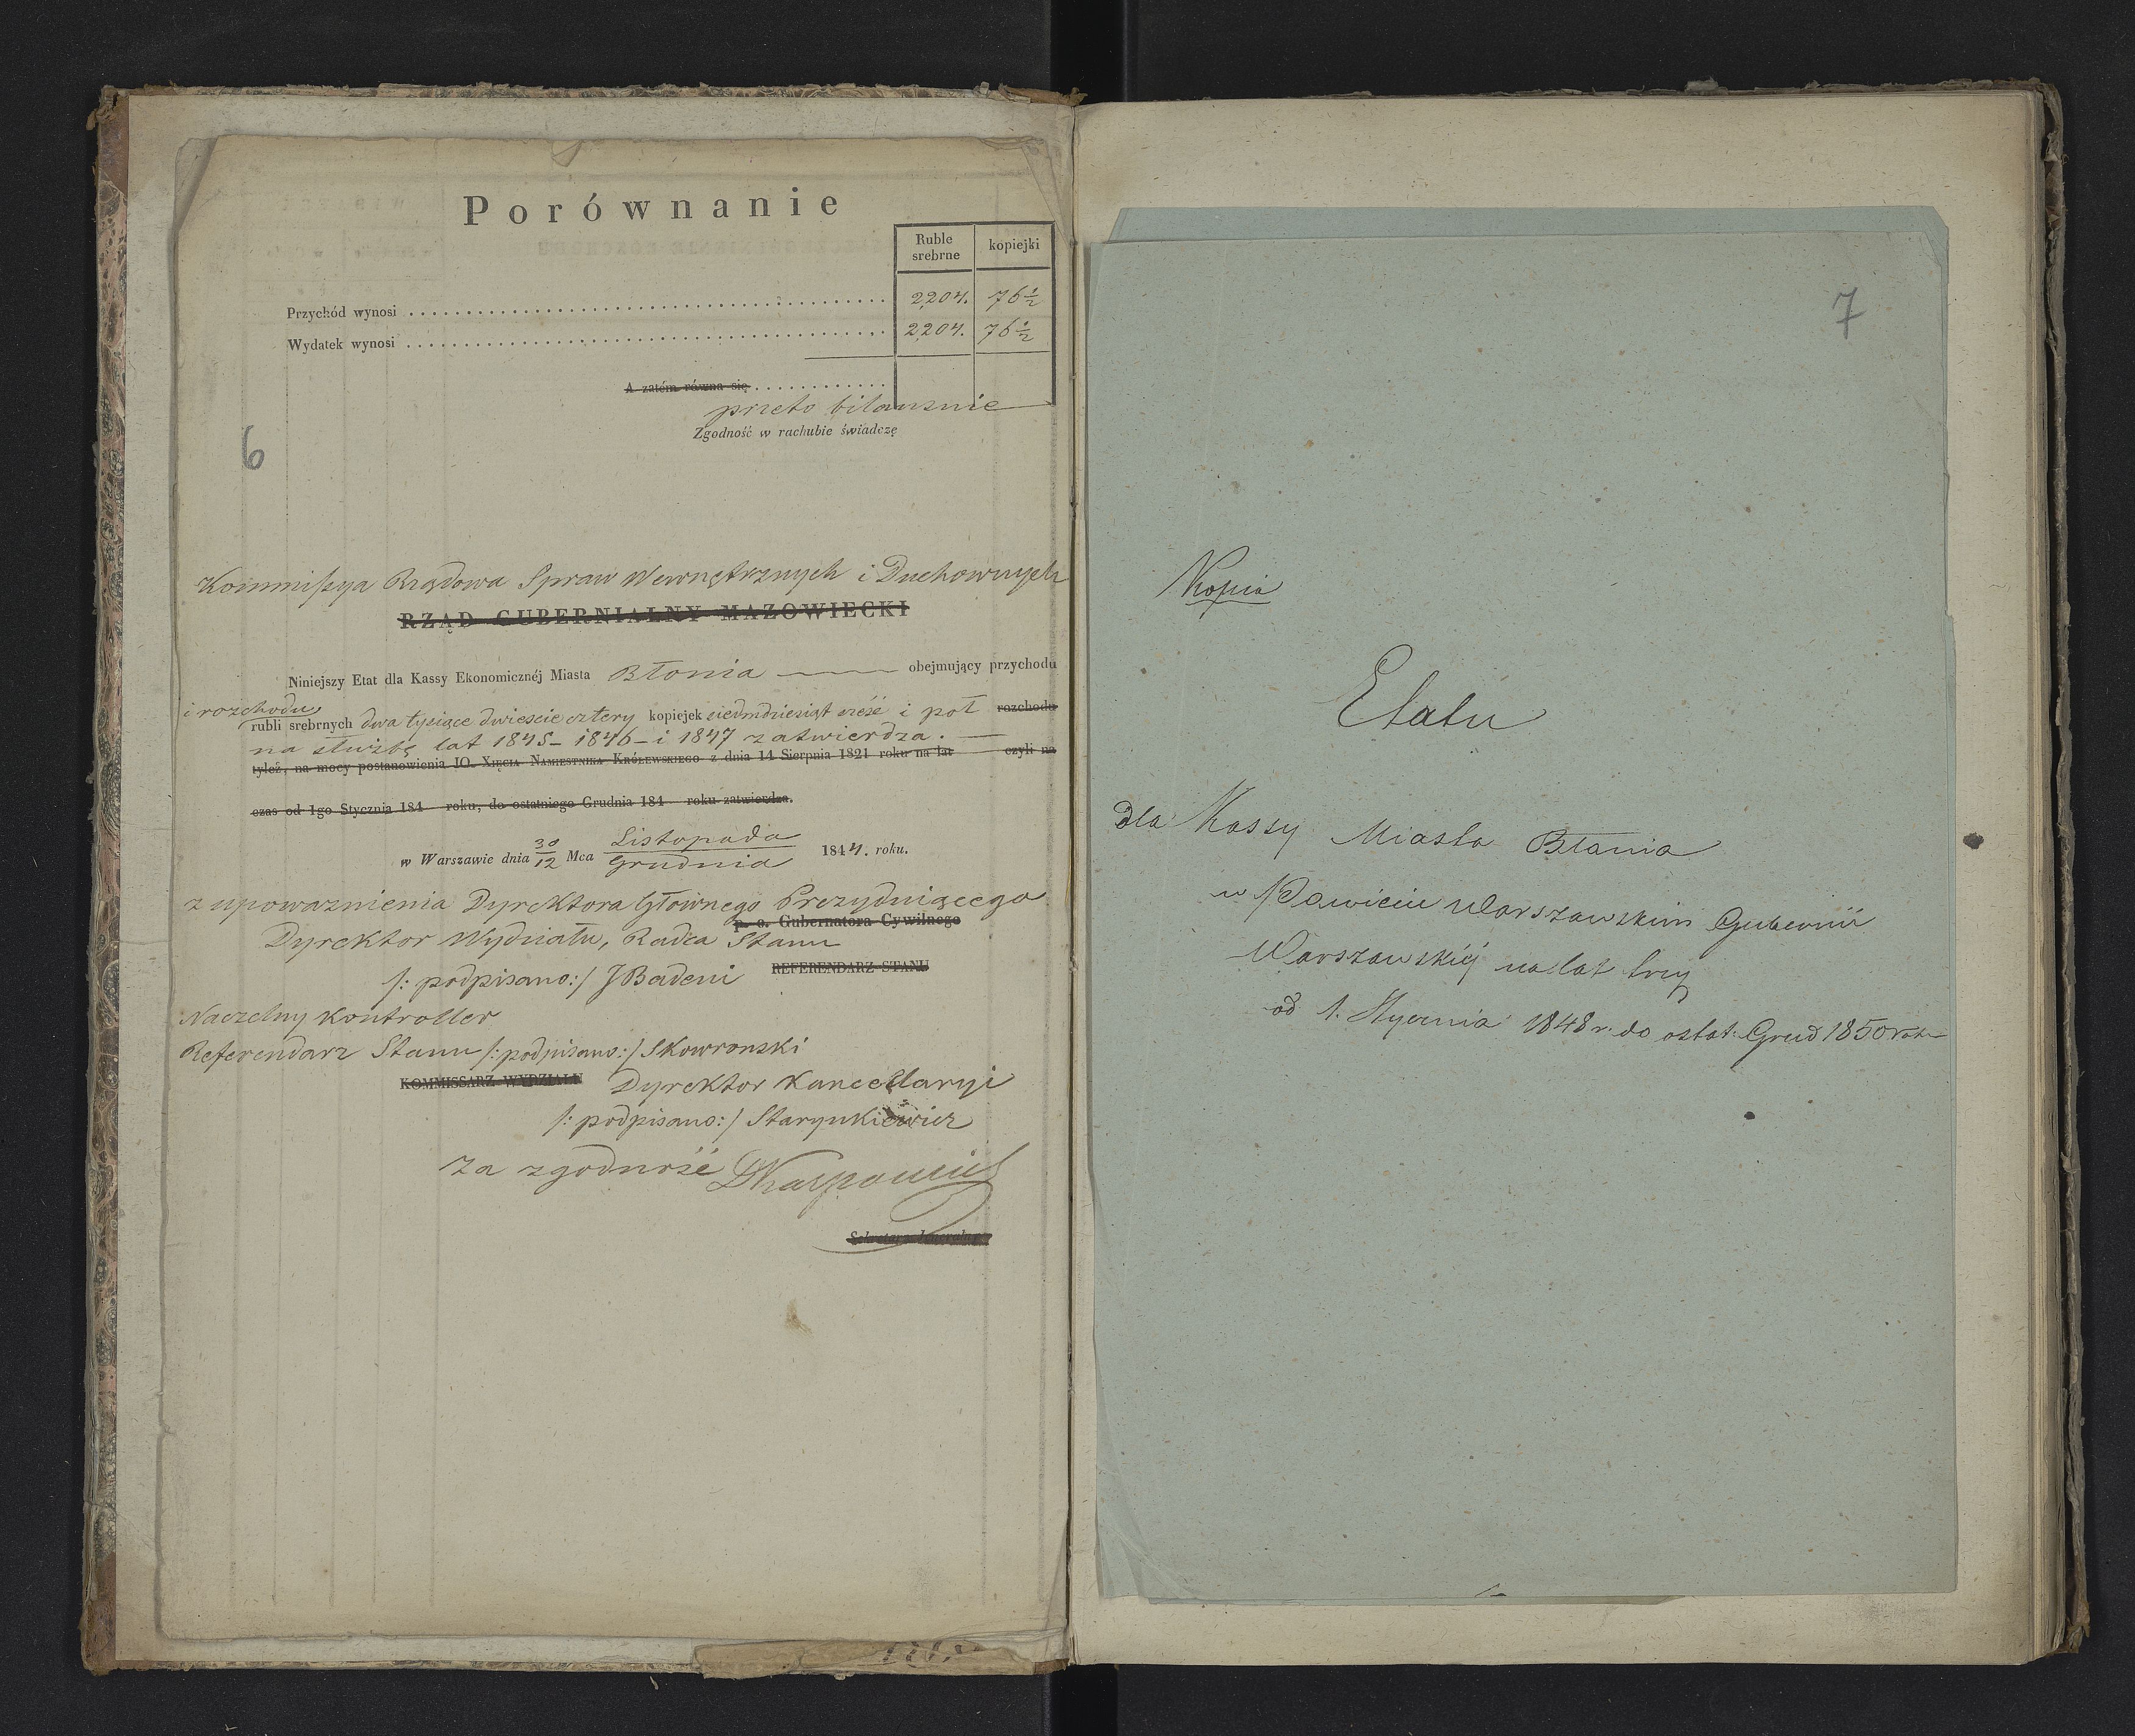 Porównanie
Ruble srebrne kopiejki
Przychód wynosi 2204. 76½
Wydatek wynosi 2204. 76½
A zatém równa się
przeto bilansuie
Zgodność w rachubie świadczę
6
Kommissya Rządowa Spraw Wewnętrznych i Duchownych
RZĄD GUBERNIALNY MAZOWIECKI
Niniejszy Etat dla Kassy Ekonomicznéj Miasta Błonia obejmujący przychodu
i rozchodu
rubli srebrnych dwa tysiące dwieście cztery kopiejek siedmdziesiąt sześć i poł rozchodu
na służbę lat 1845 - 1846 - i 1847 zatwierdza. —
tyleż, na mocy postanowienia JO. Xięcia Namiestnika Królewskiego z dnia 14 Sierpnia 1821 roku na lat czyli na
czas od 1go Stycznia 184 roku, do ostatniego Grudnia 184 roku zatwierdza.
w Warszawie dnia 30/12 Mca Listopada/Grudnia 1844. roku.
z upoważnienia Dyrektora Głównego Prezyduiącego
p. o. Gubernatora Cywilnego
Dyrektor Wydziału, Radca Stanu
REFERENDARZ STANU
/: podpisano:/ J Badeni
Naczelny Kontroller
Referendarz Stanu /: podpisano:/ Skowronski
KOMMISSARZ WYDZIAŁU Dyrektor Kancellaryi
/: podpisano:/ Starynkiewicz
Za zgodność
Sekretarz Jeneralny
7
Kopia
Etatu
dla Kassy Miasta Błonia
w Powiecie Warszawskim Gubernii
Warszawskiéj na lat trzy
od 1. Stycznia 1848 r. do ostat: Grud 1850 rok